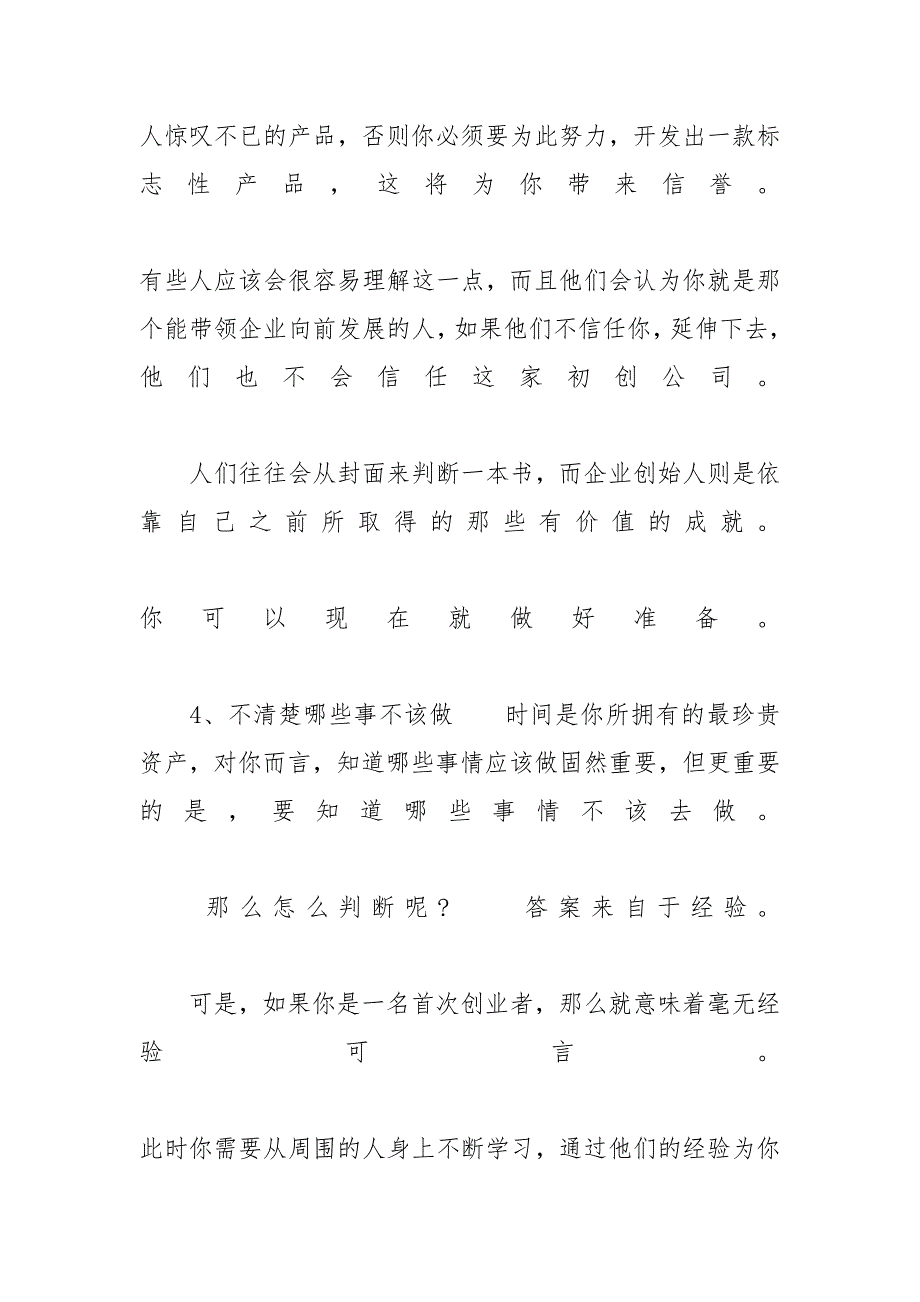 人惊叹不已的产品，否则你必须要为此努力，开发出一款标
志性产品，这将为你带来信誉。
有些人应该会很容易理解这一点，而且他们会认为你就是那
个能带领企业向前发展的人，如果他们不信任你，延伸下去，
他们也不会信任这家初创公司。
人们往往会从封面来判断一本书，而企业创始人则是依
靠自己之前所取得的那些有价值的成就。
你可以现在就做好准备。
4、不清楚哪些事不该做 时间是你所拥有的最珍贵
资产，对你而言，知道哪些事情应该做固然重要，但更重要
的是，要知道哪些事情不该去做。
那么怎么判断呢? 答案来自于经验。
可是，如果你是一名首次创业者，那么就意味着毫无经
验可言。
此时你需要从周围的人身上不断学习，通过他们的经验为你